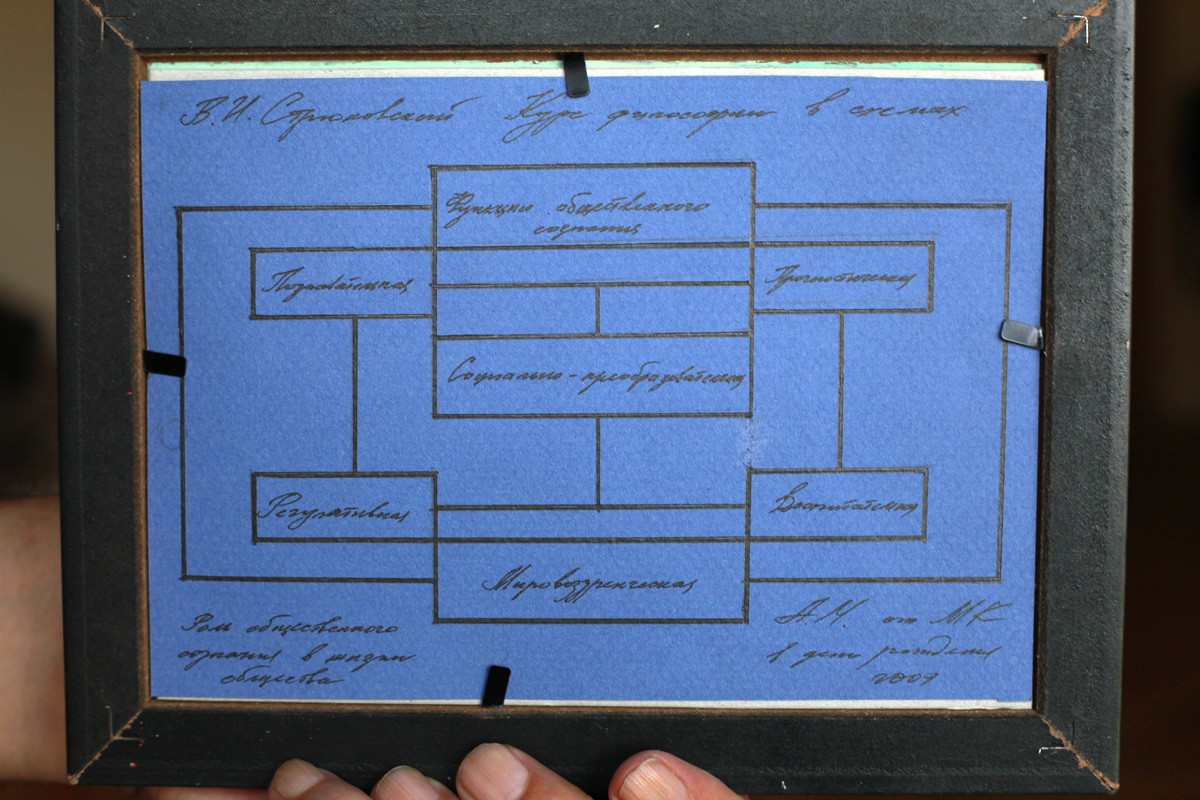 В.И. Стрюковский Курс философии в схемах
Функции общественного
сознания
Познавательная
Прогностическая
Социально-преобразовательная
Регулятивная
Воспитательная
Мировоззренческая
Роль общественного
сознания в жизни
общества
А.Ч. от МК
в день рождения
2009